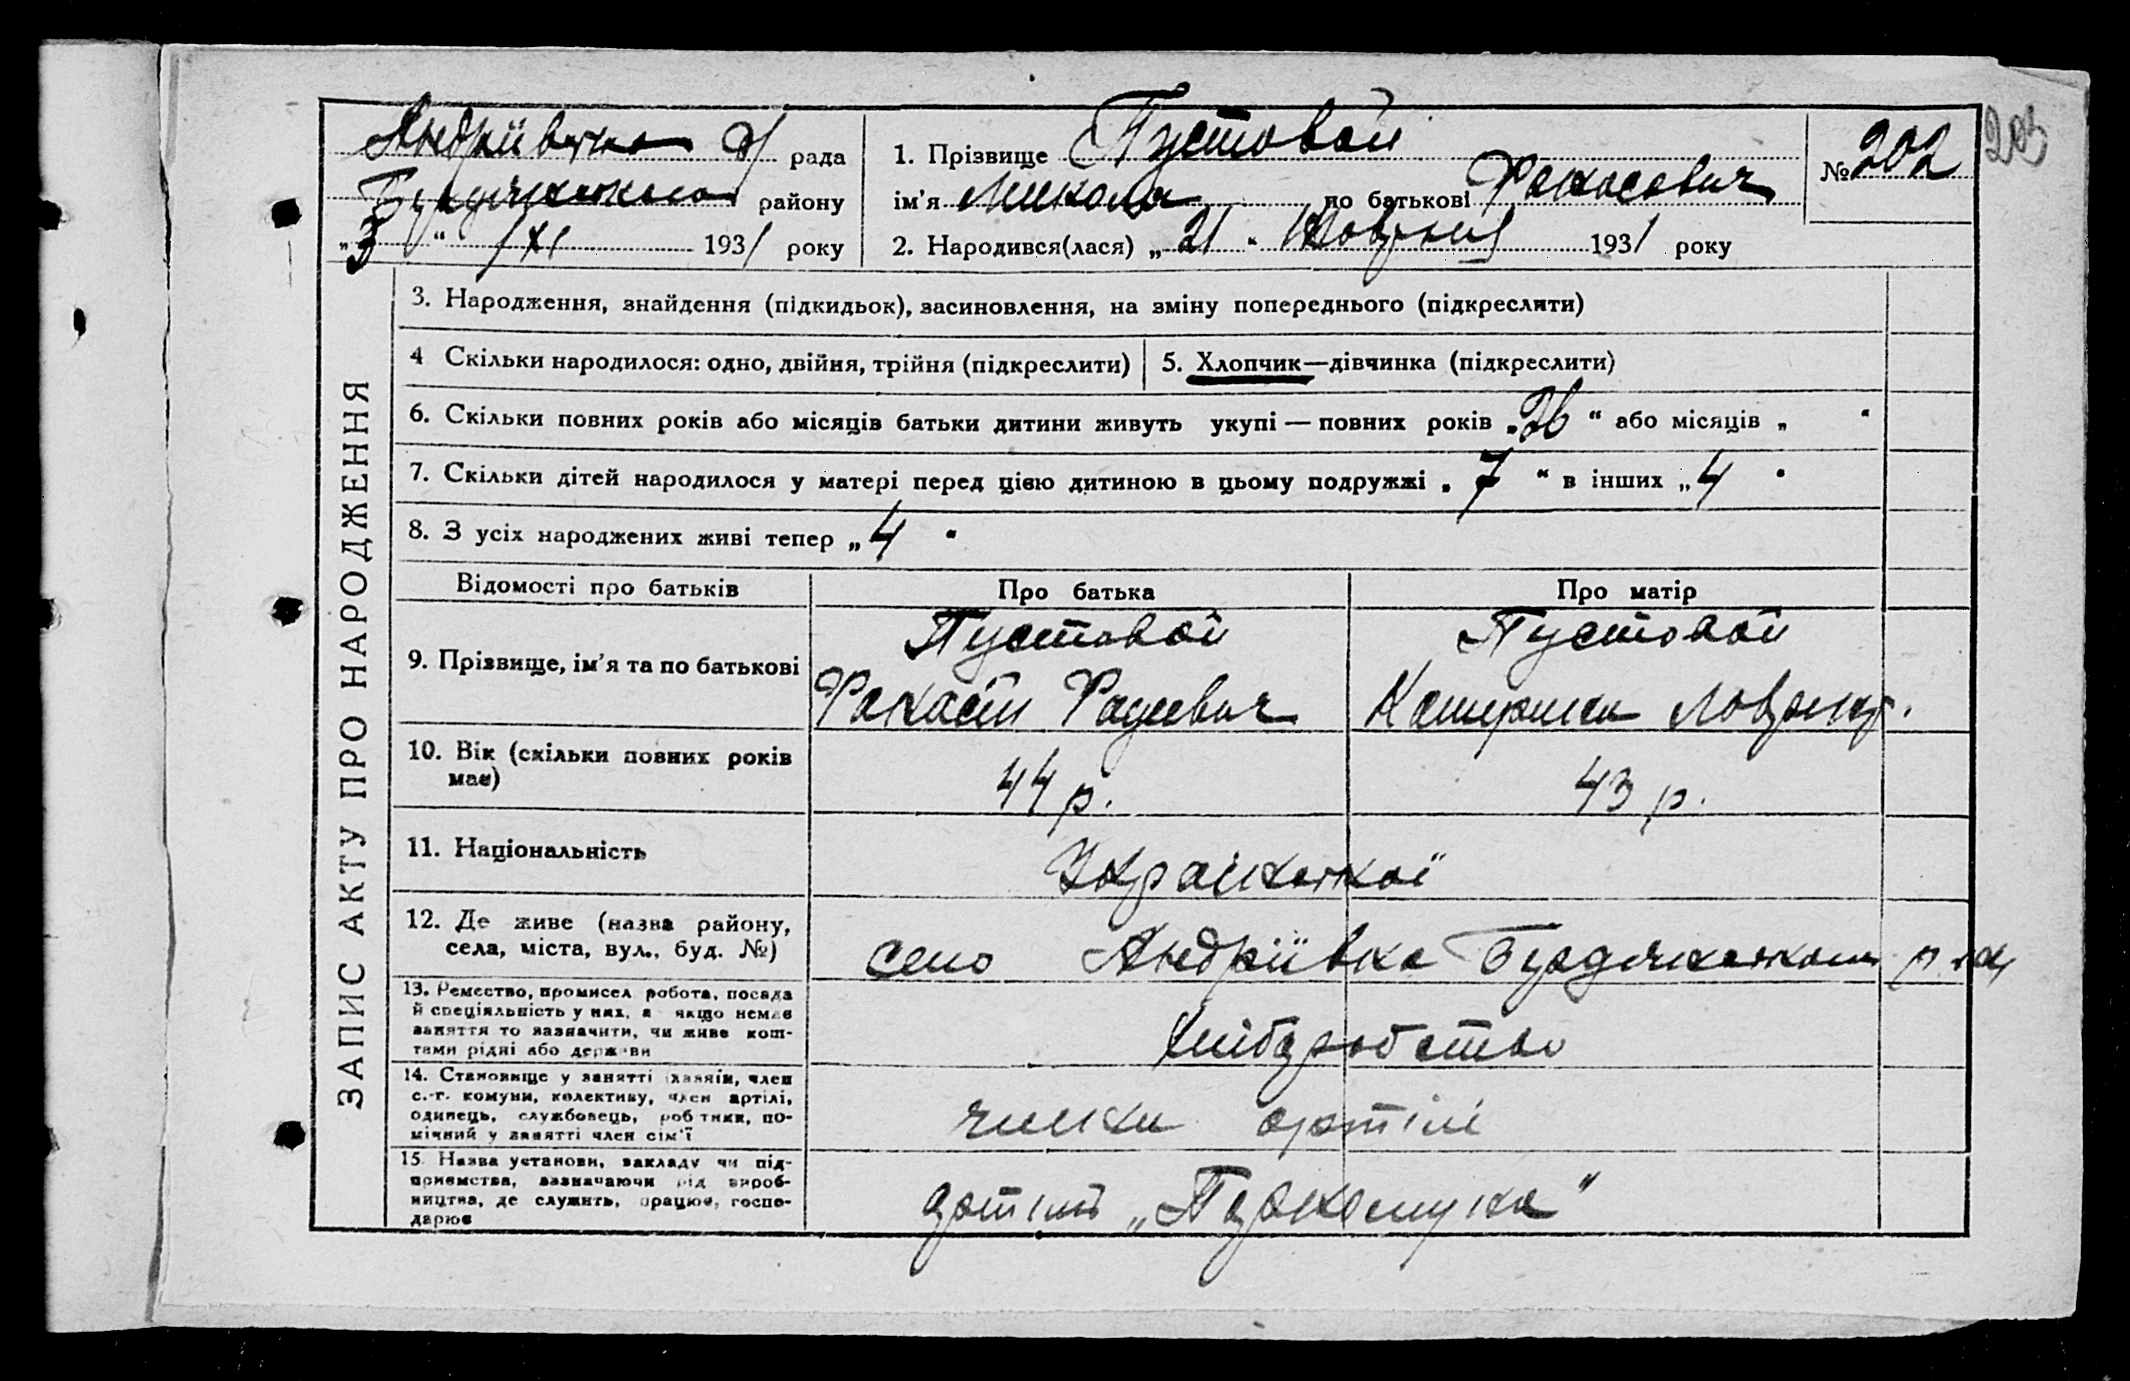 Андріївська С/ рада
району
„3“ /XI 1931 року
1. Прізвище Пустовой
ім’я Микола по батькові
2. Народився(лася) „21“ Жовтня 1931 року
№ 202
203
ЗАПИС АКТУ ПРО НАРОДЖЕННЯ
3. Народження, знайдення (підкидьок), засиновлення, на зміну попереднього (підкреслити)
4 Скільки народилося: одно, двійня, трійня (підкреслити)
5. Хлопчик—дівчинка (підкреслити)
6. Скільки повних років або місяців батьки дитини живуть укупі — повних років „26“ або місяців „ “
7. Скільки дітей народилося у матері перед цією дитиною в цьому подружжі „7“ в інших „4“
8. З усіх народжених живі тепер „4“
Відомості про батьків
Про батька
Про матір
9. Прізвище, ім’я та по батькові
Пустовой
Пустовой
10. Вік (скільки повних років має)
44 р.
43 р.
11. Національність
Української
12. Де живе (назва району,
села, міста, вул., буд. №)
село Андріївка
13. Ремество, промисел робота, посада
й спеціяльність у них, а якщо немає
заняття то зазначити, чи живе кош-
тами рідні або держави
Хліборобство
14. Становище у занятті хазяїн, член
с.-г. комуни, колективу, член артілі,
одинець, службовець, робітник, по-
мічний у занятті член сім’ї
члени артілі
15. Назва установи, закладу чи під-
приємства, зазначаючи рід вироб-
ництва, де служить, працює, госпо-
дарює
артіль